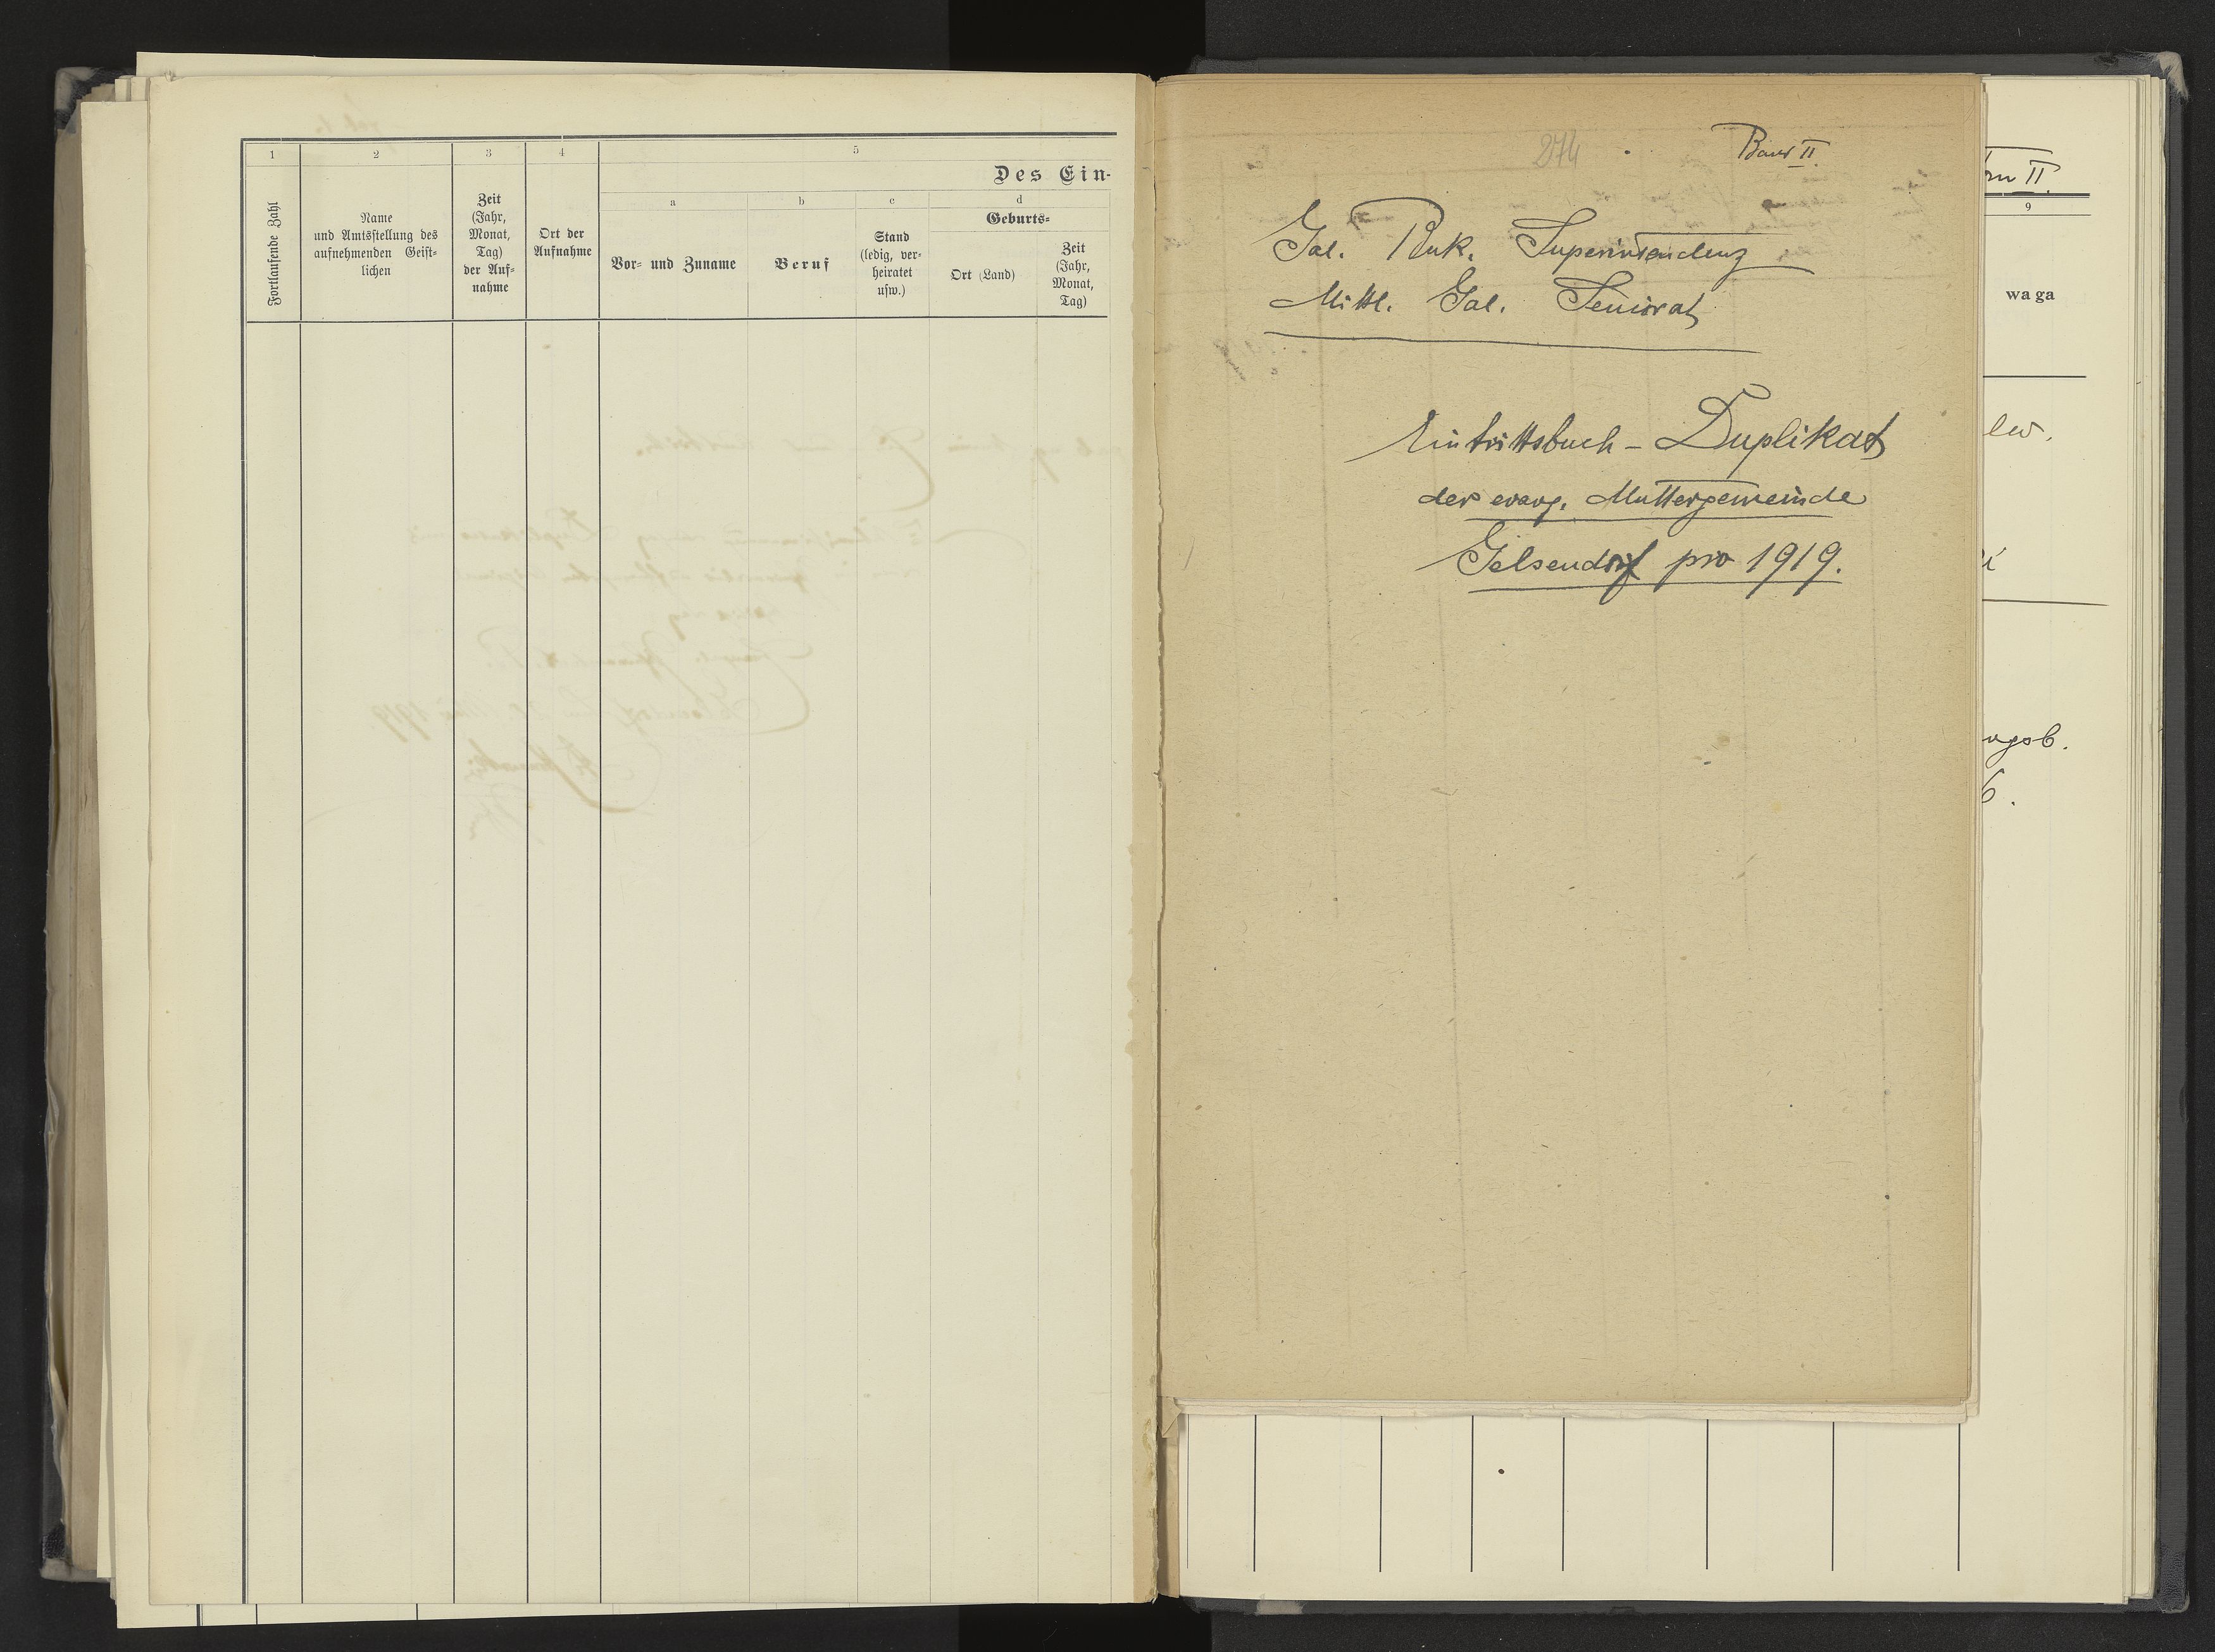 1 2 3 4 5
Des Ein-
a b c d
Fortlaufende Zahl
Name
und Amtsstellung des
aufnehmenden Geist-
lichen
Zeit
(Jahr,
Monat,
Tag)
der Auf-
nahme
Ort der
Aufnahme
Vor- und Zuname
Beruf
Stand
(ledig, ver-
heiratet
usw.)
Geburts-
Ort (Land)
Zeit
(Jahr,
Monat,
Tag)
274
Band II.
Gal. Buk. Superintendenz
Mittl. Gal. Seniorat
Eintrittsbuch - Duplikat
der evang. Muttergemeinde
Gelsendorf pro 1919.
II.
9
waga